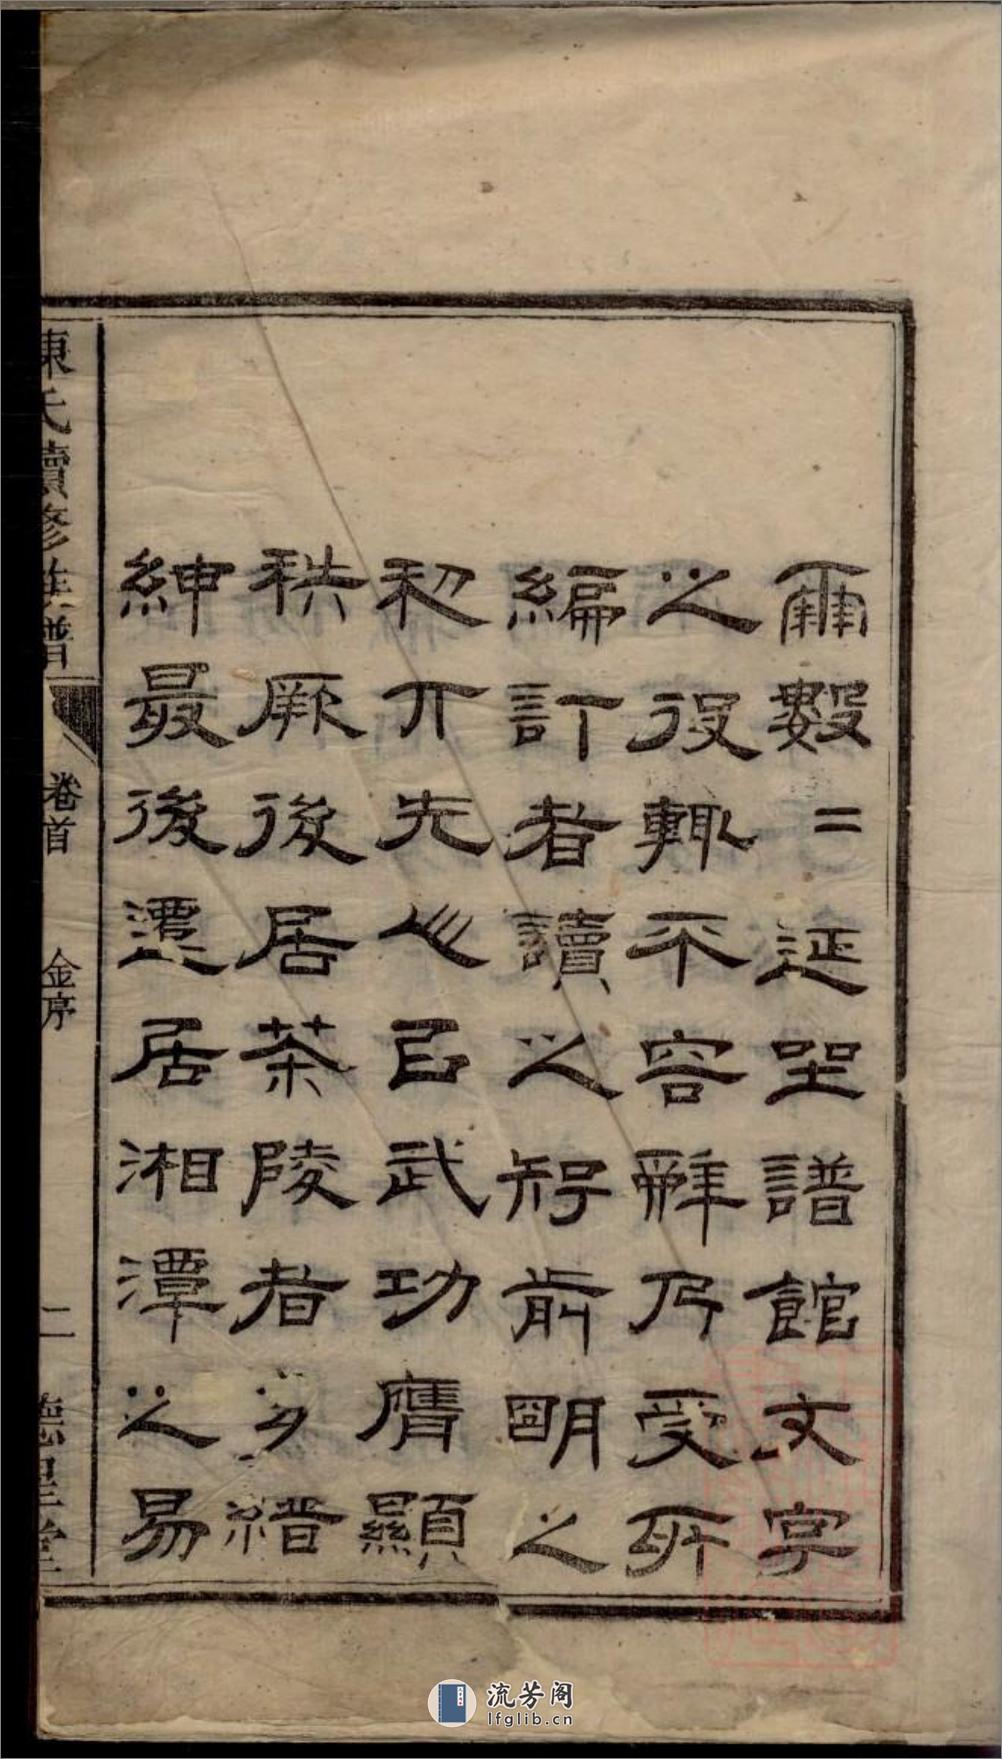 爾數二延主譜館文字
之役輒不容辭乃受所
編訂者讀之知前明之
初丌先人㠯武功膺顯
秩厥後居茶陵者多縉
紳最後遷居湘潭之易
陳氏續修族譜
卷首
金序
二
德星堂
流芳阁
lfglib.cn